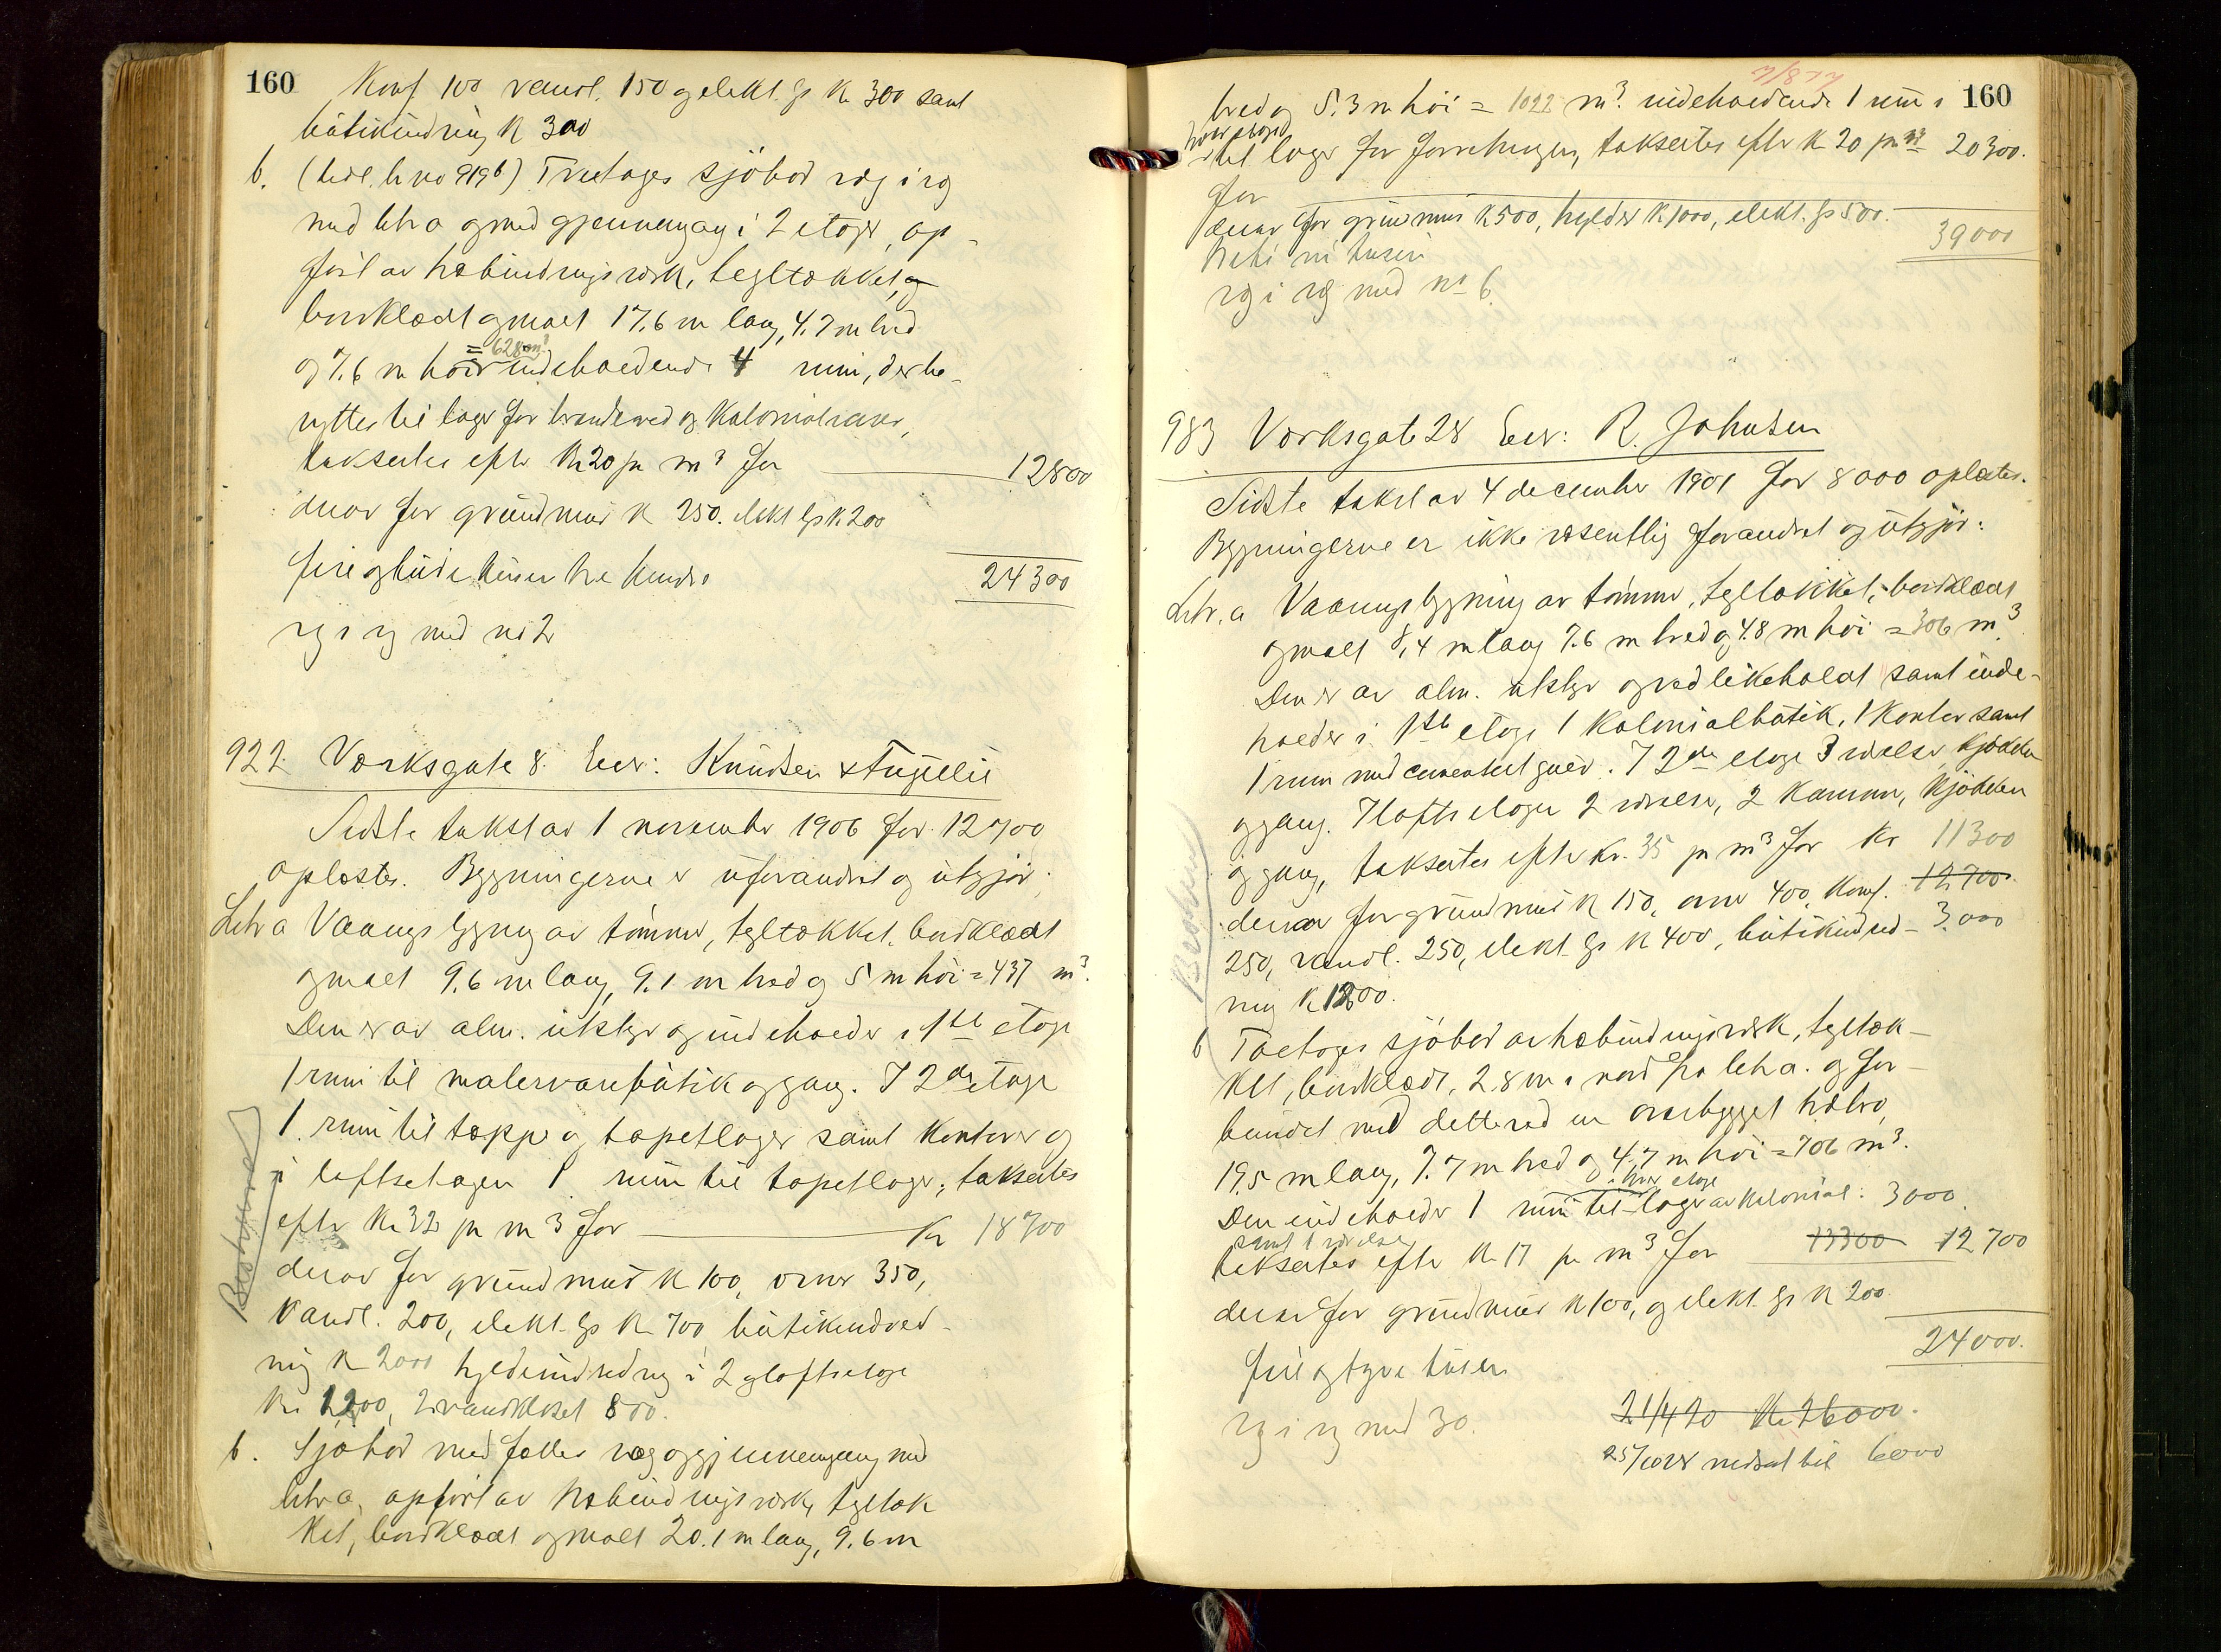 160
Komf. 100 vandl. 150 og elekt. lys k 300 samt
butikindredning K 300
b. (tidl. br no 919b) Toetages sjöbod væg i væg
med litr a og med gjennemgang i 2 etager, op-
fört av halvbindingsverk, tegltækket, og
bordklædt og malt 17.6 m lang, 4.7 m bred
= 628 m3
og 7.6 m höi indeholdende 4 rum, der be-
nyttes til lager for brændeved og Kolonialvarer,
taksertes efter Kr 20 pr m3 for 12800
derav for grundmur K 250. elekt lys k 200
fire og tyve tusen tre hundre 24300
væg i væg med no 2
922. Værksgate 8. Eier: Knudsen &
Sidste takst av 1 november 1906 for 12700
oplæstes. Bygningerne er uforandret og utgjör:
Litr a Vaaningsbygning av tömmer, tegltækket, bordklædt
og malt 9.6 m lang, 9.1 m bred og 5 m höi = 437 m3.
Den er av alm. utstyr og indeholder i 1ste etage
1 rum til malervarebutik og gang. I 2den etage
1 rum til tæppe og tapetlager samt kontorer og
i loftsetagen 1 rum til tapetlager; taksertes
efter Kr 32 pr m3 for Kr 18700
derav for grundmur K 100, ovner 350,
Vandl. 200, elekt. lys K 700 butikindred-
ning K 2000 hyldeindredning i 2 og loftsetage
Kr 1200, 2 vandkloset 800.
b. Sjöbod med fælles væg og gjennemgang med
litr a, opfört av halvbindingsverk, tegltæk
ket, bordklædt og malt 20.1 m lang, 9.6 m
160
bred og 5.3 m höi = 1022 m3. indeholdende 1 rum i
hver etage
til lager for forretningen, taksertes efter K 20 pr m3 20300.
for
derav for grundmur K 500, hylder K 1000, elekt. lys 500.
39000
Netti ni tusen
væg i væg med no 6.
983 Værksgate 28 Eier: R. Johnsen
Sidste takst av 4 december 1901 for 8000 oplæstes.
Bygningerne er ikke væsentlig forandret og utgjör:
Litr. a Vaaningsbygning av tömmer, tegltækket, bordklædt
og malt 8,4 m lang 7.6 m bred og 4.8 m höi = 306 m3
Den er av alm. utstyr og vedlikeholdt samt inde-
holder i 1ste etage 1 Kolonialbutik, 1 Kontor samt
1 rum med cementert gulv. I 2den etage 3 værelser, kjökken
og gang. I loftsetagen 2 værelser, 2 kammer, kjökken
og gang, taksertes efter kr. 35 pr m3 for Kr 11300
12700
derav for grundmur K 150, ovner 400, Komf.
250, vandl. 250, elekt. lys K 400, butikindred- 3.000
ning K 1200.
b Toetages sjöbod av halvbindingsverk, tegltæk-
ket, bordklædt, 2.8 m i nord fra litr a. og for-
bundet med dette ved en overbygget trælvo
19.5 m lang, 7.7 m bred og 4.7 m höi = 706 m3.
i hver etage
Den indeholder 1 rum til lager av kolonial: 3000.
samt 1 værelse
taksertes efter K 17 pr m3 for 13300 12700
derav for grundmur K 100, og elekt. lys K 200
24000.
fire og tyve tusen
væg i væg med 30.
21/4 20 Kr 26000.
nedsat til 6000